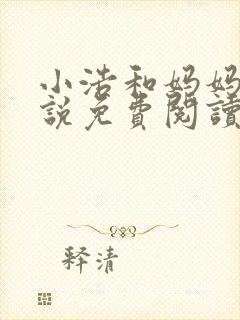 小浩和妈妈
說免費閱讀
释清